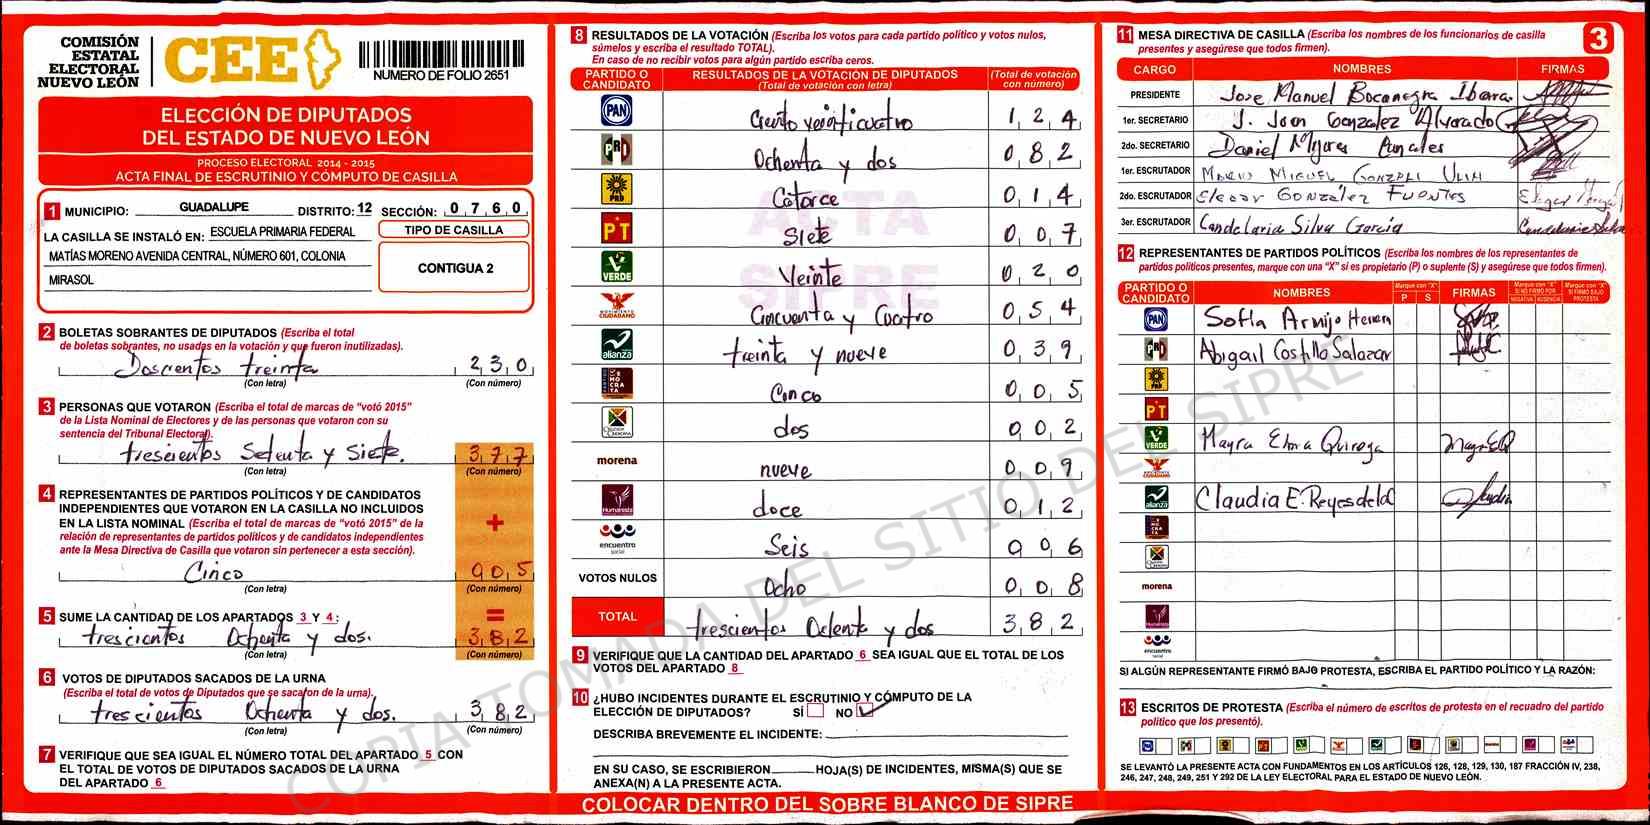 COMISIÓN
ESTATAL
ELECTORAL
NUEVO LEÓN
CEE
NUMERO DE FOLIO 2651
ELECCIÓN DE DIPUTADOS
DEL ESTADO DE NUEVO LEÓN
PROCESO ELECTORAL 2014 - 2015
ACTA FINAL DE ESCRUTINIO Y CÓMPUTO DE CASILLA
1 MUNICIPIO: GUADALUPE DISTRITO: 12 SECCIÓN: 0760
LA CASILLA SE INSTALÓ EN: ESCUELA PRIMARIA FEDERAL
MATÍAS MORENO AVENIDA CENTRAL, NÚMERO 601, COLONIA
MIRASOL
TIPO DE CASILLA
CONTIGUA 2
2 BOLETAS SOBRANTES DE DIPUTADOS (Escriba el total
de boletas sobrantes, no usadas en la votación y que fueron inutilizadas).
Doscientos treinta 230
(Con letra) (Con número)
3 PERSONAS QUE VOTARON (Escriba el total de marcas de "votó 2015"
de la Lista Nominal de Electores y de las personas que votaron con su
sentencia del Tribunal Electoral).
trescientos Setenta y Siete. 377
(Con letra) (Con número)
4 REPRESENTANTES DE PARTIDOS POLÍTICOS Y DE CANDIDATOS
INDEPENDIENTES QUE VOTARON EN LA CASILLA NO INCLUIDOS
EN LA LISTA NOMINAL (Escriba el total de marcas de "votó 2015" de la
relación de representantes de partidos políticos y de candidatos independientes
ante la Mesa Directiva de Casilla que votaron sin pertenecer a esta sección).
+
Cinco 005
(Con letra) (Con número)
=
5 SUME LA CANTIDAD DE LOS APARTADOS 3 Y 4:
trescientos Ochenta y dos. 382
(Con letra) (Con número)
6 VOTOS DE DIPUTADOS SACADOS DE LA URNA
(Escriba el total de votos de Diputados que se sacaron de la urna).
trescientos Ochenta y dos. 382
(Con letra) (Con número)
7 VERIFIQUE QUE SEA IGUAL EL NÚMERO TOTAL DEL APARTADO 5 CON
EL TOTAL DE VOTOS DE DIPUTADOS SACADOS DE LA URNA
DEL APARTADO 6
8 RESULTADOS DE LA VOTACIÓN (Escriba los votos para cada partido político y votos nulos,
súmelos y escriba el resultado TOTAL).
En caso de no recibir votos para algún partido escriba ceros.
PARTIDO O CANDIDATO RESULTADOS DE LA VOTACIÓN DE DIPUTADOS (Total de votación con letra) (Total de votación con número)
PAN Ciento veinticuatro 124
PRI Ochenta y dos 082
PRD Catorce 014
PT Siete 007
VERDE Veinte 020
MOVIMIENTO CIUDADANO Cincuenta y Cuatro 054
alianza treinta y nueve 039
Cinco 005
dos 002
morena nueve 009
Humanista doce 012
encuentro social Seis 006
VOTOS NULOS Ocho 008
TOTAL trescientos Ochenta y dos 382
ACTA
SIPRE
9 VERIFIQUE QUE LA CANTIDAD DEL APARTADO 6 SEA IGUAL QUE EL TOTAL DE LOS
VOTOS DEL APARTADO 8
10 ¿HUBO INCIDENTES DURANTE EL ESCRUTINIO Y CÓMPUTO DE LA
ELECCIÓN DE DIPUTADOS? SÍ NO
DESCRIBA BREVEMENTE EL INCIDENTE:
EN SU CASO, SE ESCRIBIERON HOJA(S) DE INCIDENTES, MISMA(S) QUE SE
ANEXA(N) A LA PRESENTE ACTA.
COLOCAR DENTRO DEL SOBRE BLANCO DE SIPRE
COPIA TOMADA DEL SITIO DEL SIPRE
11 MESA DIRECTIVA DE CASILLA (Escriba los nombres de los funcionarios de casilla
presentes y asegúrese que todos firmen).
3
CARGO NOMBRES FIRMAS
PRESIDENTE Jose Manuel Bocanegra Ibarra
1er. SECRETARIO J. Juan Gonzalez Alvarado
2do. SECRETARIO Daniel Mijares
1er. ESCRUTADOR Mario Miguel
2do. ESCRUTADOR Eleaar González Fuentes
3er. ESCRUTADOR Candelaria Silva García Candelaria Silva
12 REPRESENTANTES DE PARTIDOS POLÍTICOS (Escriba los nombres de los representantes de
partidos políticos presentes, marque con una "X" si es propietario (P) o suplente (S) y asegúrese que todos firmen).
PARTIDO O CANDIDATO NOMBRES Marque con "X" P S FIRMAS Marque con "X" SI NO FIRMÓ POR NEGATIVA AUSENCIA Marque con "X" SI FIRMÓ BAJO PROTESTA
PAN Sofia Armijo Herrera
PRI Abigail Costilla Salazar
PRD
PT
VERDE Mayra Elma Quiroga
alianza Claudia E. Reyes
morena
encuentro social
SI ALGÚN REPRESENTANTE FIRMÓ BAJO PROTESTA, ESCRIBA EL PARTIDO POLÍTICO Y LA RAZÓN:
13 ESCRITOS DE PROTESTA (Escriba el número de escritos de protesta en el recuadro del partido
político que los presentó).
SE LEVANTÓ LA PRESENTE ACTA CON FUNDAMENTOS EN LOS ARTÍCULOS 126, 128, 129, 130, 187 FRACCIÓN IV, 238,
246, 247, 248, 249, 251 Y 292 DE LA LEY ELECTORAL PARA EL ESTADO DE NUEVO LEÓN.